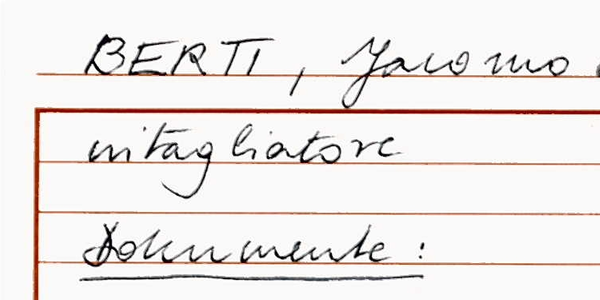 BERTI, Jacomo
intagliatore
Dokumente: